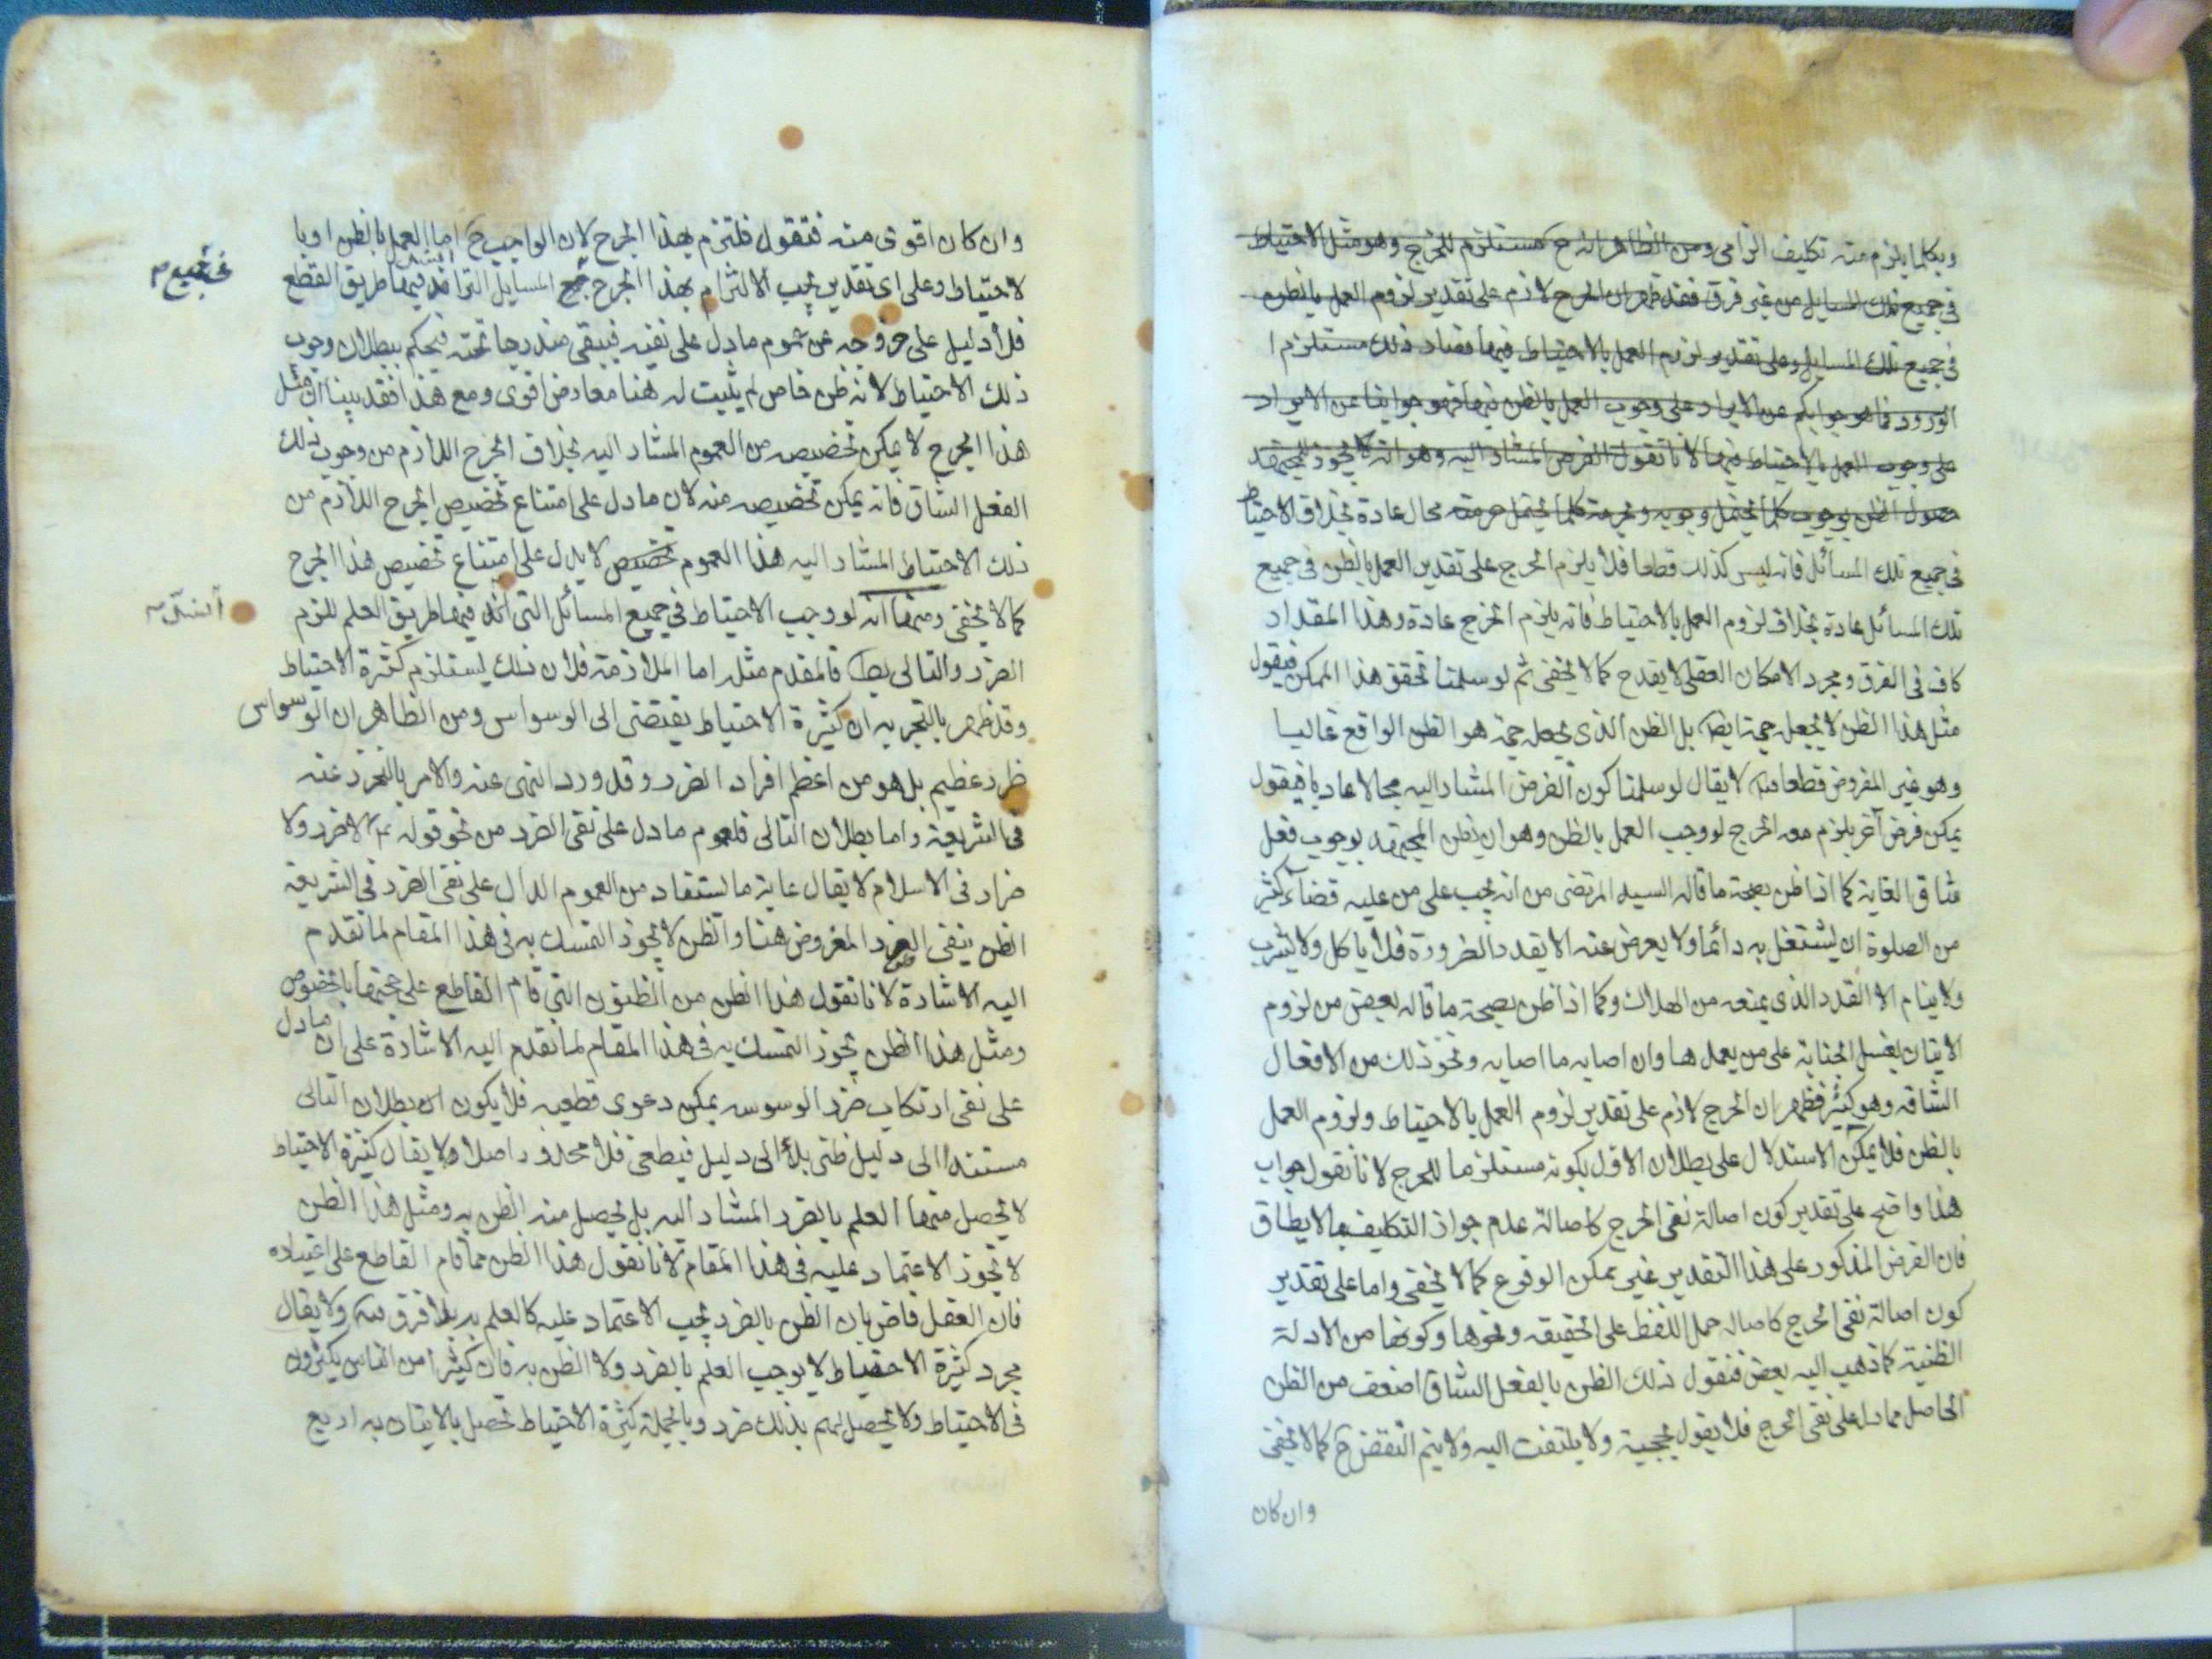 وبكلما يلزم منه تكليف الزامى ومن الظاهر انه ح مستلزم للحرج وهو مثل الاحتياط
فى جميع تلك المسايل من غير فرق فقد ظهر ان الحرج لازم على تقدير لزوم العمل بالظن
فى جميع تلك المسايل وعلى تقدير لزوم العمل بالاحتياط فيها فضاد ذلك مستلزم ا
الورود فما هو جوابكم عن الايراد على وجوب العمل بالظن فيها فهو جوابنا عن الايراد
على وجوب العمل بالاحتياط فيها لانا نقول الفرض المشار اليه وهو انه لا يجوز للمجتهد
حصول الظن بوجوب كلما يحتمل وجوبه وبحرمة كلما يحتمل حرمته محال عادة بخلاف الاحتياط
فى جميع تلك المسائل فانه ليس كذلك قطعا فلا يلزم الحرج على تقدير العمل بالظن فى جميع
تلك المسائل عادة بخلاف لزوم العمل بالاحتياط فانه يلزم الحرج عادة وهذا المقدار
كاف فى الفرق ومجرد الامكان العقلى لا يقدح كما لا يخفى ثم لو سلمنا تحقق هذا الممكن فيقول
مثل هذا الظن لا يجعل حجة ايضا بل الظن الذى يجعل حجة هو الظن الواقع غالبا
وهو غير المفروض قطعا لا يقال لو سلمنا كون الفرض المشار اليه محالا عاديا فيقول
يمكن فرض آخر يلزم معه الحرج لو وجب العمل بالظن وهو ان يظن المجتهد بوجوب فعل
شاق الغاية كما اذا ظن بصحة ما قاله السيد المرتضى من انه يجب على من عليه قضاء كثير
من الصلوة ان يشتغل به دائما ولا يعرض عنه الا بقدر الضرورة فلا ياكل ولا يشرب
ولا ينام الا القدر الذى يمنعه من الهلاك وكما اذا ظن بصحة ما قاله بعض من لزوم
الاتيان بغسل الجنابة على من يعمل ها وان اصابه ما اصابه ونحو ذلك من الافعال
الشاقه وهو كثير فظهر ان الحرج لازم على تقدير لزوم العمل بالاحتياط ولزوم العمل
بالظن فلا يمكن الاستدلال على بطلان الاول بكونه مستلزما للحرج لانا نقول جواب
هذا واضح على تقدير كون اصالة نفى الحرج كاصالة عدم جواز التكليف بما لا يطاق
فان الفرض المذكور على هذا التقدير غير ممكن الوقوع كما لا يخفى واما على تقدير
كون اصالة نفى الحرج كاصاله حمل اللفظ على الحقيقه ونحوها وكونها من الادلة
الظنية كما ذهب اليه بعض فنقول ذلك الظن بالفعل الشاق اضعف من الظن
الحاصل مما دل على نفى الحرج فلا يقول بحجيته ولا يلتفت اليه ولا يتم النقض ح كما لا يخفى
وان كان
وان كان اقوى منه فنقول فلتزم بهذا الحرج لان الواجب ح اما العمل بالظن او با
لاحتياط وعلى اى تقدير يجب الالتزام بهذا الحرج المسايل التى انسد فيها طريق القطع
فجميع م
فلا دليل على خروجه عن عموم ما دل على نفيه فيبقى مندرجا تحته فيحكم ببطلان وجوب
ذلك الاحتياط لانه ظن خاص لم يثبت له هنا معارض اقوى ومع هذا فقد بينا ان مثل
هذا الحرج لا يمكن تخصيصه من العموم المشار اليه بخلاف الحرج اللازم من وجوب ذلك
الفعل الشاق فانه يمكن تخصيصه منه لان ما دل على امتناع تخصيص الحرج اللازم من
ذلك الاحتياط المشار اليه هذا العموم تخصيص لا يدل على امتناع تخصيص هذا الحرج
كما لا يخفى ومنها انه لو وجب الاحتياط فى جميع المسائل التى انسد فيها طريق العلم للزم
انسد م
الضرر والتالى بط فالمقدم مثله اما الملازمة فلان ذلك يستلزم كثرة الاحتياط
وقد ظهر بالتجربه ان كثيرة الاحتياط يفتضى الى الوسواس ومن الظاهر ان الوسواس
ظرر عظيم بل هو من اعظم افراد الضرر وقد ورد النهى عنه والامر بالتحرز عنه
فى الشريعة واما بطلان التالى فلعموم ما دل على نفى الضرر من نحو قوله ع لا ضرر ولا
ضرار فى الاسلام لا يقال غاية ما يستفاد من العموم الدال على نفى الضرر فى الشريعة
الظن ينفى الضرر المفروض هنا والظن لا يجوز التمسك به فى هذا المقام لما تقدم
اليه الاشارة لانا نقول هذا الظن من الظنون التى قام القاطع على حجيتها بالخصوص
ومثل هذا الظن يجوز التمسك به فى هذا المقام لما تقدم اليه الاشارة على ان ما دل
على نفى ارتكاب ضرر الوسوسه يمكن دعوى قطعيه فلا يكون بطلان التالى
مستندا الى دليل ظنى بل الى دليل قطعى فلا محذور اصلا ولا يقال كثيرة الاحتياط
لا يحصل منها العلم بالضرر المشار اليه بل يحصل منه الظن به ومثل هذا الظن
لا يجوز الاعتماد عليه فى هذا المقام لانا نقول هذا الظن مما قام القاطع على اعتباره
فان العقل قاض بان الظن بالضرر يجب الاعتماد عليه كالعلم به بلا فرق ولا يقال
مجرد كثيرة الاحتياط لا يوجب العلم بالضرر ولا الظن به فان كثيرا من الناس يكثرون
فى الاحتياط ولا يحصل لهم بذلك ضرر وبالجملة كثيرة الاحتياط تحصل بالاتيان به اربع